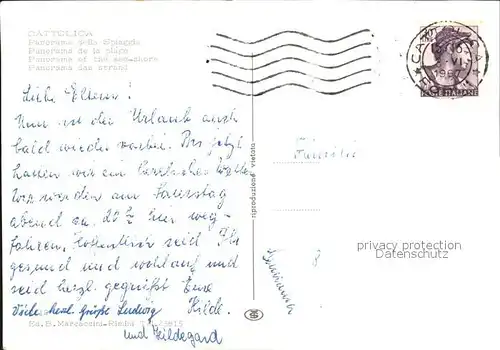 CATTOLICA
Panorama della Spiaggia
Panorama de la plage
Panorama of the sea-shore
Panorama des Strand
Liebe Eltern!
Nun ist der Urlaub auch
bald wieder vorbei. Bis jetzt
hatten wir ein herrliches Wetter
Wir werden am Samstag
abend ca. hier weg-
fahren. Hoffentlich seid Ihr
gesund und wohlauf und
seid herzl. gegrüßt Eure
Hilde.
herzl. Grüße Ludwig
und Hildegard
riproduzione vietata
Familie
8
1967
privacy protection
Datenschutz